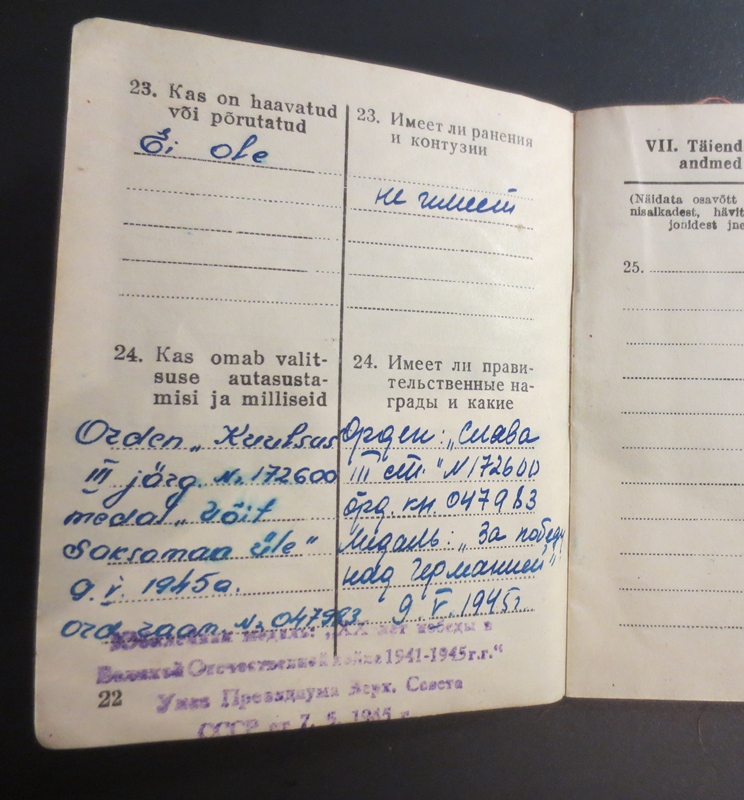 23. Kas on haavatud
või põrutatud
Ei ole
24. Kas omab valit-
suse autasusta-
misi ja milliseid
Orden „Kuulsus
III järg. № 172600
medal „Võit
Saksamaa üle"
9. V. 1945a.
ord. raam. № 047983
23. Имеет ли ранения
и контузии
не имеет
24. Имеет ли прави-
тельственные на-
грады и какие
Орден: „Слава
III ст." N 172600
орд. кн. 047983
Медаль: „За победу
над Германией"
9. V. 1945г.
медаль: „XX лет победы в
Великой Отечественной войне 1941-1945г.г."
Указ Президиума Верх. Совета
СССР от 7. 5.
22
VII. Täiend
andmed
(Näidata osavõtt
nisalkadest, hävit
jonidest jne
25.